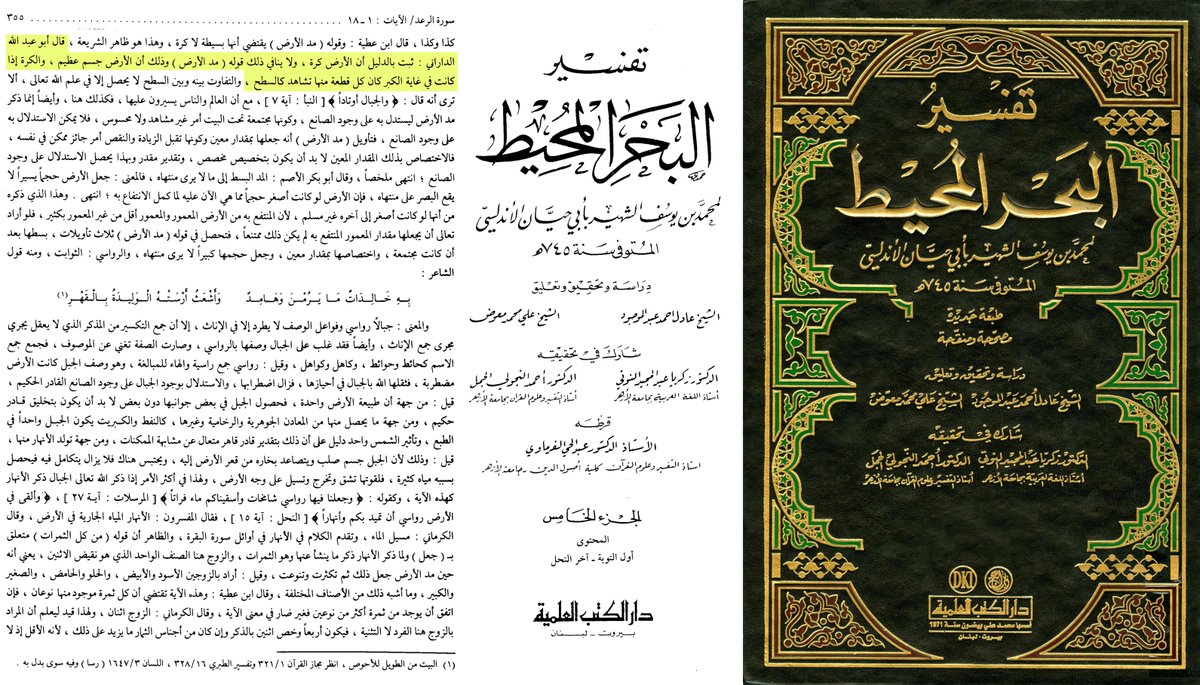 سورة الرعد/ الآيات : ١ - ١٨
٣٥٥
كذا وكذا ، قال ابن عطية : وقوله ( مد الأرض ) يقتضي أنها بسيطة لا كرة ، وهذا هو ظاهر الشريعة ، قال أبو عبد الله
الداراني : ثبت بالدليل أن الأرض كرة ، ولا ينافي ذلك قوله ( مد الأرض ) وذلك أن الأرض جسم عظيم ، والكرة إذا
كانت في غاية الكبر كان كل قطعة منها تشاهد كالسطح ، والتفاوت بينه وبين السطح لا يحصل إلا في علم الله تعالى ، ألا
ترى أنه قال : ﴿ والجبال أوتاداً ﴾ [ النبأ : آية ٧ ] ، مع أن العالم والناس يسيرون عليها ، فكذلك هنا ، وأيضاً إنما ذكر
مد الأرض ليستدل به على وجود الصانع ، وكونها مجتمعة تحت البيت أمر غير مشاهد ولا محسوس ، فلا يمكن الاستدلال به
على وجود الصانع ، فتأويل ( مد الأرض ) أنه جعلها بمقدار معين وكونها تقبل الزيادة والنقص أمر جائز ممكن في نفسه ،
فالاختصاص بذلك المقدار المعين لا بد أن يكون بتخصيص مخصص ، وتقدير مقدار وبهذا يحصل الاستدلال على وجود
الصانع ؛ انتهى ملخصاً ، وقال أبو بكر الأصم : المد البسط إلى ما لا يرى منتهاه ، فالمعنى : جعل الأرض حجماً يسيراً لا
يقع البصر على منتهاه ، فإن الأرض لو كانت أصغر حجماً مما هي الآن عليه لما كمل الانتفاع به ؛ انتهى . وهذا الذي ذكره
من أنها لو كانت أصغر إلى آخره غير مسلم ، لأن المنتفع به من الأرض المعمور والمعمور أقل من غير المعمور بكثير ، فلو أراد
تعالى أن يجعلها مقدار المعمور المنتفع به لم يكن ذلك ممتنعاً ، فتحصل في قوله ( مد الأرض ) ثلاث تأويلات ، بسطها بعد
أن كانت مجتمعة ، واختصاصها بمقدار معين ، وجعل حجمها كبيراً لا يرى منتهاه ، والرواسي : الثوابت ، ومنه قول
الشاعر :
بِهِ خَـالِـدَاتٌ مَـا يَـرِمْـنَ وَهَـامِـدٌ وَأَشْعَثُ أَرْسَتْـهُ الْـوَلِيـدَةُ بِـالْـفَهْـرِ (١)
والمعنى : جبالاً رواسي وفواعل الوصف لا يطرد إلا في الإناث ، إلا أن جمع التكسير من المذكر الذي لا يعقل يجري
مجرى جمع الإناث ، وأيضاً فقد غلب على الجبال وصفها بالرواسي ، وصارت الصفة تغني عن الموصوف ، فجمع جمع
الاسم كحائط وحوائط ، وكاهل وكواهل ، وقيل : رواسي جمع راسية والهاء للمبالغة ، وهو وصف الجبل كانت الأرض
مضطربة ، فثقلها الله بالجبال في أحيازها ، فزال اضطرابها ، والاستدلال بوجود الجبال على وجود الصانع القادر الحكيم ،
قيل : من جهة أن طبيعة الأرض واحدة ، فحصول الجبل في بعض جوانبها دون بعض لا بد أن يكون بتخليق قـادر
حكيم ، ومن جهة ما يحصل منها من المعادن الجوهرية والرخامية وغيرها ، كالنفط والكبريت يكون الجبـل واحـداً في
الطبع ، وتأثير الشمس واحد دليل على أن ذلك بتقدير قادر قاهر متعال عن مشابهة الممكنات ، ومن جهة تولد الأنهار منها ،
قيل : وذلك لأن الجبل جسم صلب ويتصاعد بخاره من قعر الأرض إليه ، ويحتبس هناك فلا يزال يتكامل فيه فيحصل
بسببه مياه كثيرة ، فلقوتها تشق وتخرج وتسيل على وجه الأرض ، ولهذا في أكثر الأمر إذا ذكر الله تعالى الجبال ذكر الأنهار
كهذه الآية ، وكقوله : ﴿ وجعلنا فيها رواسي شامخات وأسقيناكم ماء فراتاً ﴾ [ المرسلات : آيـة ٢٧ ] ، ﴿ وألقى في
الأرض رواسي أن تميد بكم وأنهاراً ﴾ [ النحل : آية ١٥ ] ، فقال المفسرون : الأنهار المياه الجارية في الأرض ، وقال
الكرماني : مسيل الماء ، وتقدم الكلام في الأنهار في أوائل سورة البقرة ، والظاهر أن قوله ( من كل الثمرات ) متعلق
بـ ( جعل ) ولما ذكر الأنهار ذكر ما ينشأ عنها وهو الثمرات ، والزوج هنا الصنف الواحد الذي هو نقيض الاثنين ، يعني أنه
حين مد الأرض جعل ذلك ثم تكثرت وتنوعت ، وقيل : أراد بالزوجين الأسود والأبيض ، والحلو والحامض ، والصغير
والكبير ، وما أشبه ذلك من الأصناف المختلفة ، وقال ابن عطية : وهذه الآية تقتضي أن كل ثمرة موجود منها نوعان ، فإن
اتفق أن يوجد من ثمرة أكثر من نوعين فغير ضار في معنى الآية ، وقال الكرماني : الزوج اثنان ، ولهذا قيد ليعلم أن المراد
بالزوج هنا الفرد لا التثنية ، فيكون أربعاً وخص اثنين بالذكر وإن كان من أجناس الثمار ما يزيد على ذلك ، لأنه الأقل إذ لا
(١) البيت من الطويل للأحوص ، انظر مجاز القرآن ٣٢١/١ وتفسير الطبري ٣٢٨/١٦ ، اللسان ١٦٤٧/٣ ( رسا ) وفيه سوى بدل به .
تفسير
البحر المحيط
لمحمد بن يوسف الشهير بأبي حيان الأندلسي
المتوفى سنة ٧٤٥هـ
دراسة وتحقيق وتعليق
الشيخ عادل أحمد عبد الموجود الشيخ علي محمد معوض
شارك في تحقيقه
الدكتور زكريا عبد المجيد النوتي الدكتور أحمد النجولي الجمل
أستاذ اللغة العربية بجامعة الأزهر أستاذ التفسير وعلوم القرآن بجامعة الأزهر
قرظه
الأستاذ الدكتور عبد الحي الفرماوي
أستاذ التفسير وعلوم القرآن كلية أصول الدين - جامعة الأزهر
الجزء الخامس
المحتوى
أول التوبة - آخر النحل
دار الكتب العلمية
بيروت - لبنان
تفسير
البحر المحيط
لمحمد بن يوسف الشهير بأبي حيان الأندلسي
المتوفى سنة ٧٤٥هـ
طبعة جديدة
مصححة ومنقحة
دراسة وتحقيق وتعليق
الشيخ عادل أحمد عبد الموجود الشيخ علي محمد معوض
شارك في تحقيقه
الدكتور زكريا عبد المجيد النوتي الدكتور أحمد النجولي الجمل
أستاذ اللغة العربية بجامعة الأزهر أستاذ التفسير وعلوم القرآن بجامعة الأزهر
DKI
دار الكتب العلمية
أسسها محمد علي بيضون سنة 1971
بيروت - لبنان